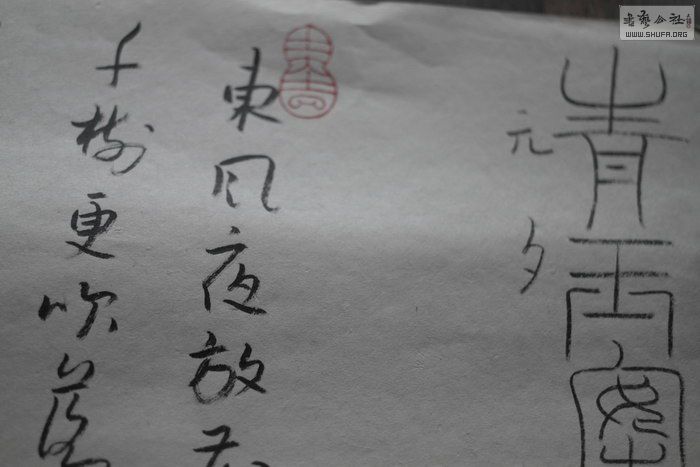 青玉案
元夕
東风夜放花
千樹更吹落
书艺公社
WWW.SHUFA.ORG